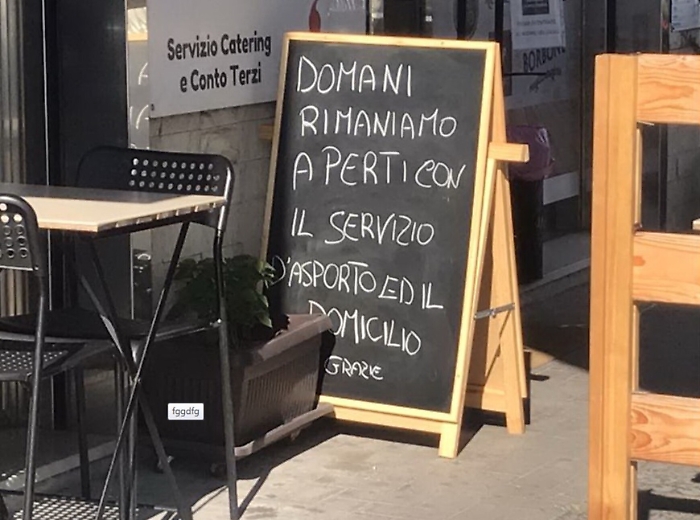 Servizio Catering
e Conto Terzi
DOMANI
RIMANIAMO
APERTI CON
IL SERVIZIO
D'ASPORTO ED IL
DOMICILIO
GRAZIE
BORBONE
fggdfg